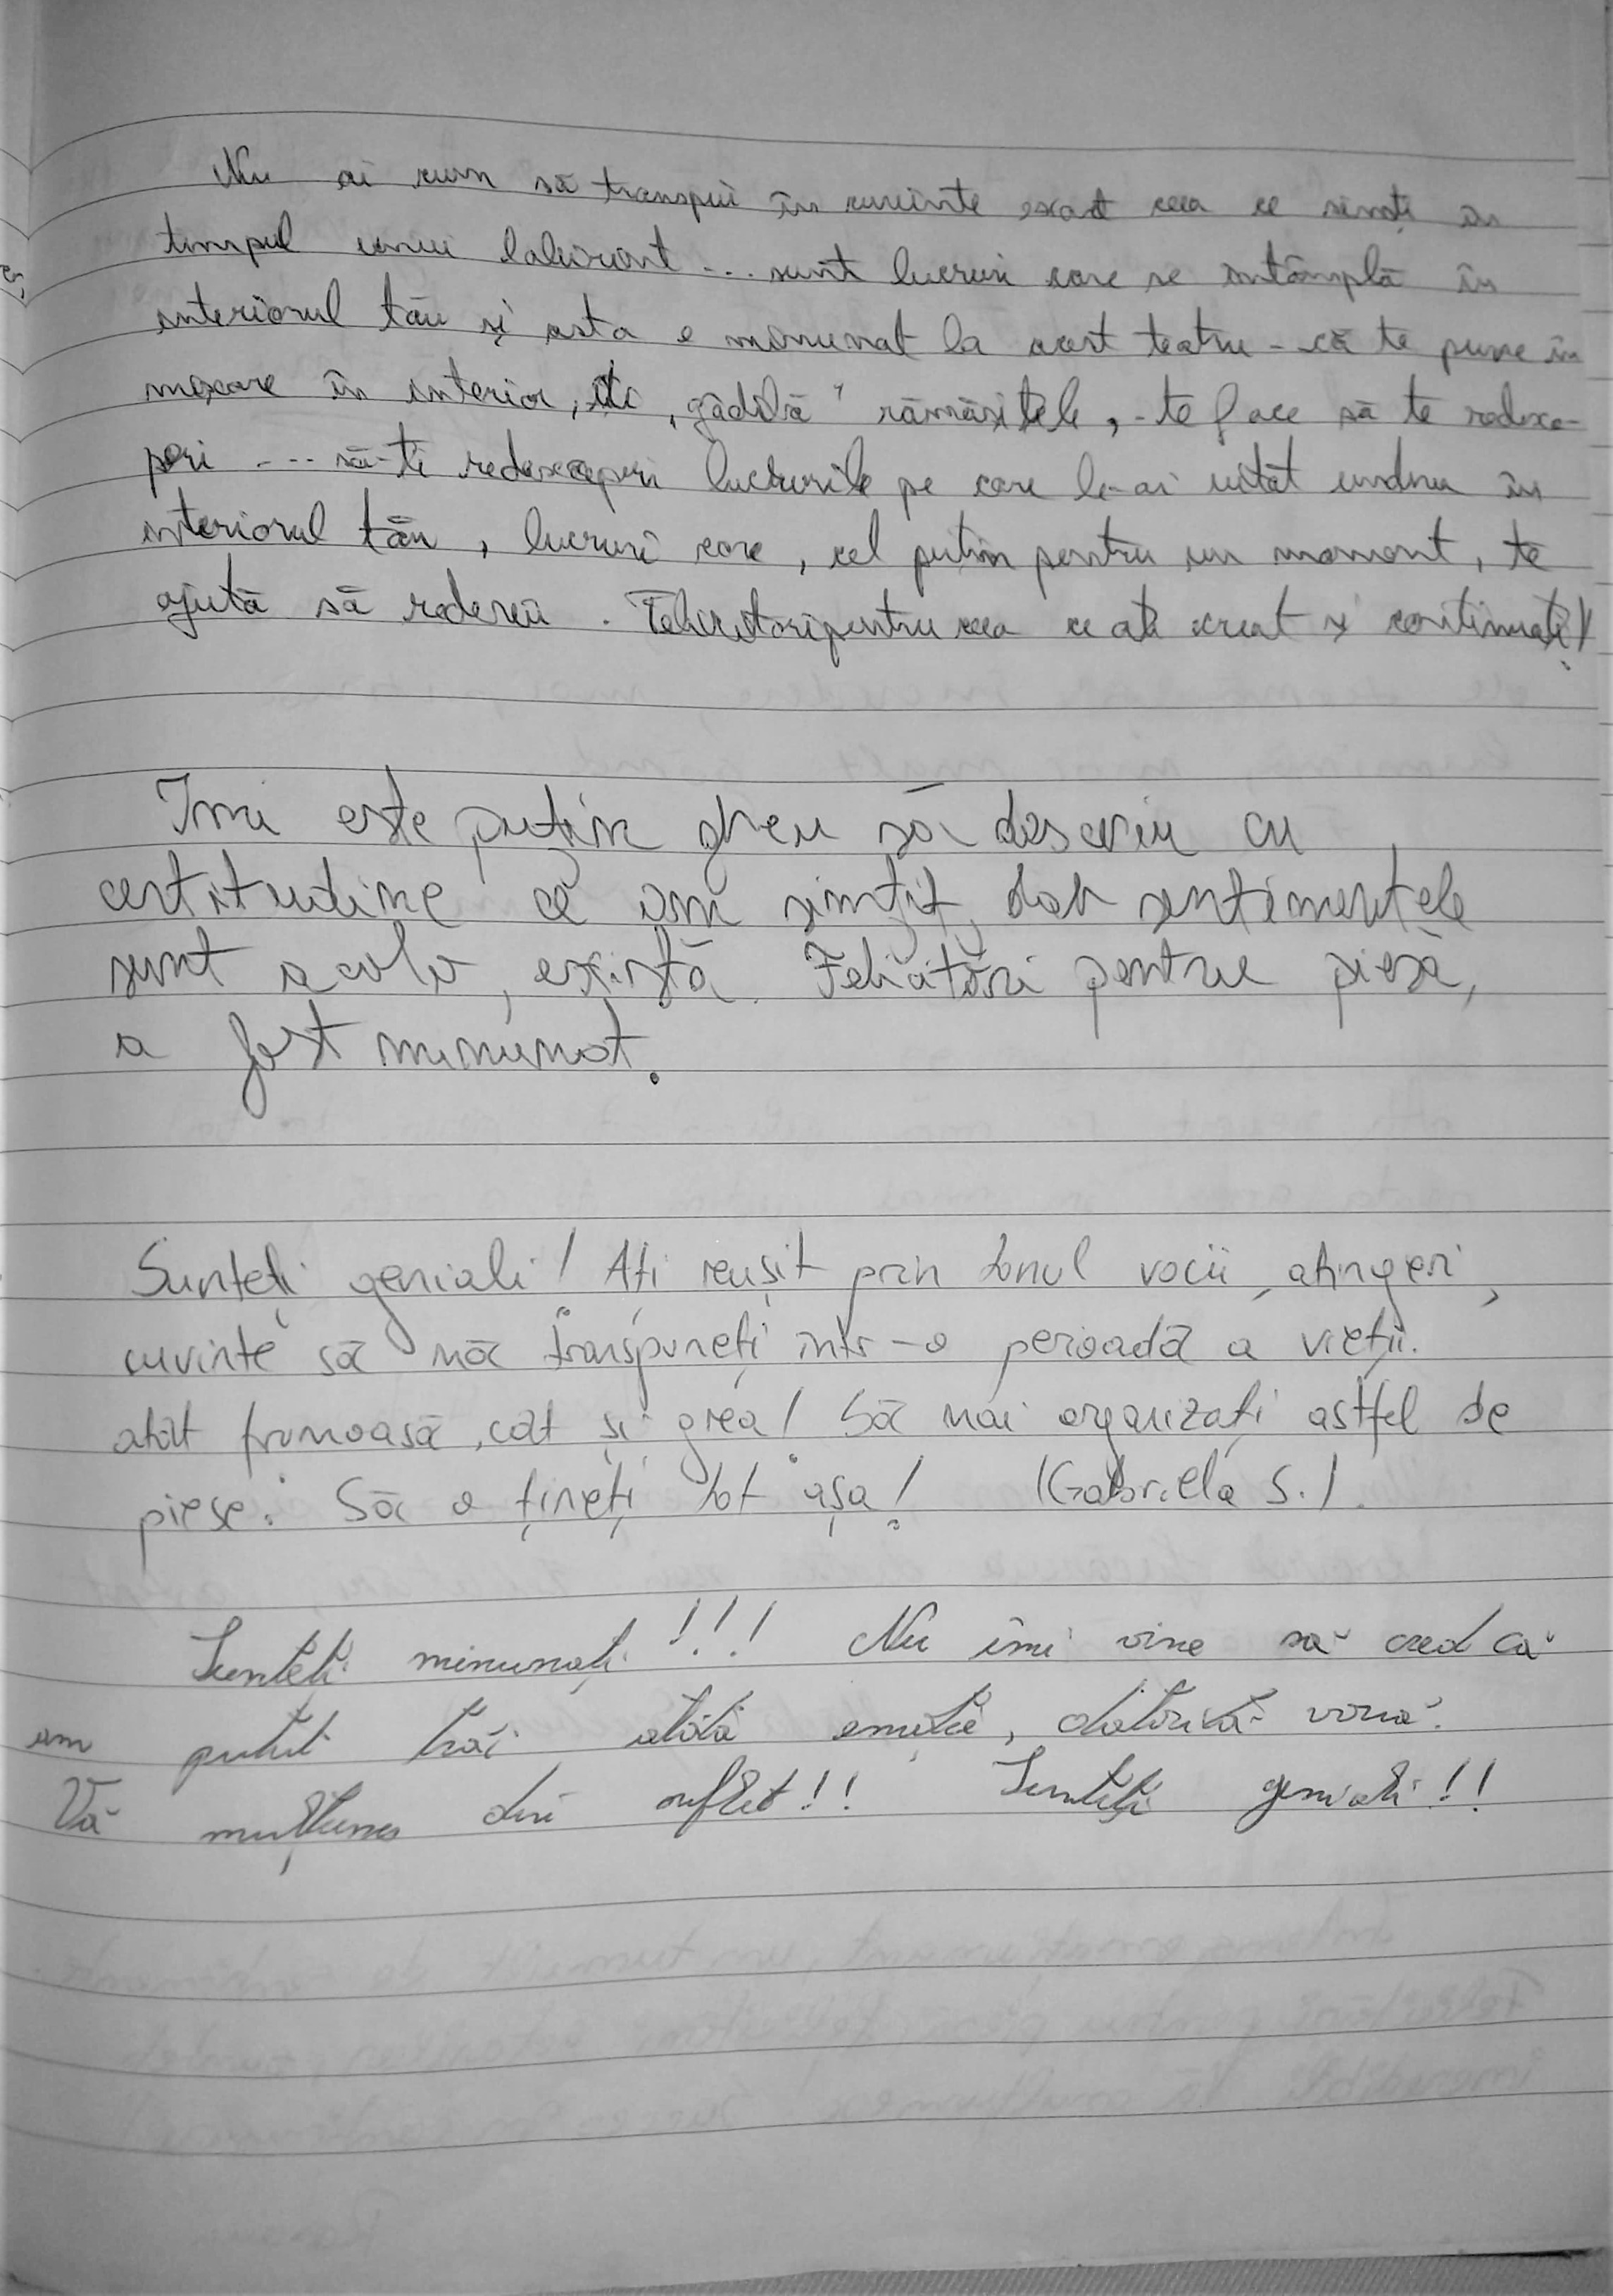 Nu ai cum să transpui în cuvinte exact ceea ce simți în
timpul unui labirint ... sunt lucruri care se întâmplă în
interiorul tău și asta e minunat la acest teatru - că te pune în
mișcare în interior, îți „gâdilă” rămășitele, - te face să te redesco-
peri ... să-ti redescoperi lucrurile pe care le-ai uitat undeva în
interiorul tău, lucruri care, cel puțin pentru un moment, te
ajută să redevii. Felicitări pentru ceea ce ati creat și continuați!
Imi este puțin greu să descriu cu
certitudine ce am simțit, dar sentimentele
sunt acolo, există. Felicitări pentru piesă,
a fost minunat.
Sunteți geniali! Ați reușit prin tonul vocii, atingeri,
cuvinte să mă transpuneți intr-o perioadă a vieții.
atât frumoasă, cât și grea! Să mai organizați astfel de
piese. Să o țineți tot așa! (Gabriela S.)
Sunteți minunați!!! Nu îmi vine să cred că
am putut trăi atâta emoție, datorită vouă.
Vă mulțumes din suflet!! Sunteți geniali!!